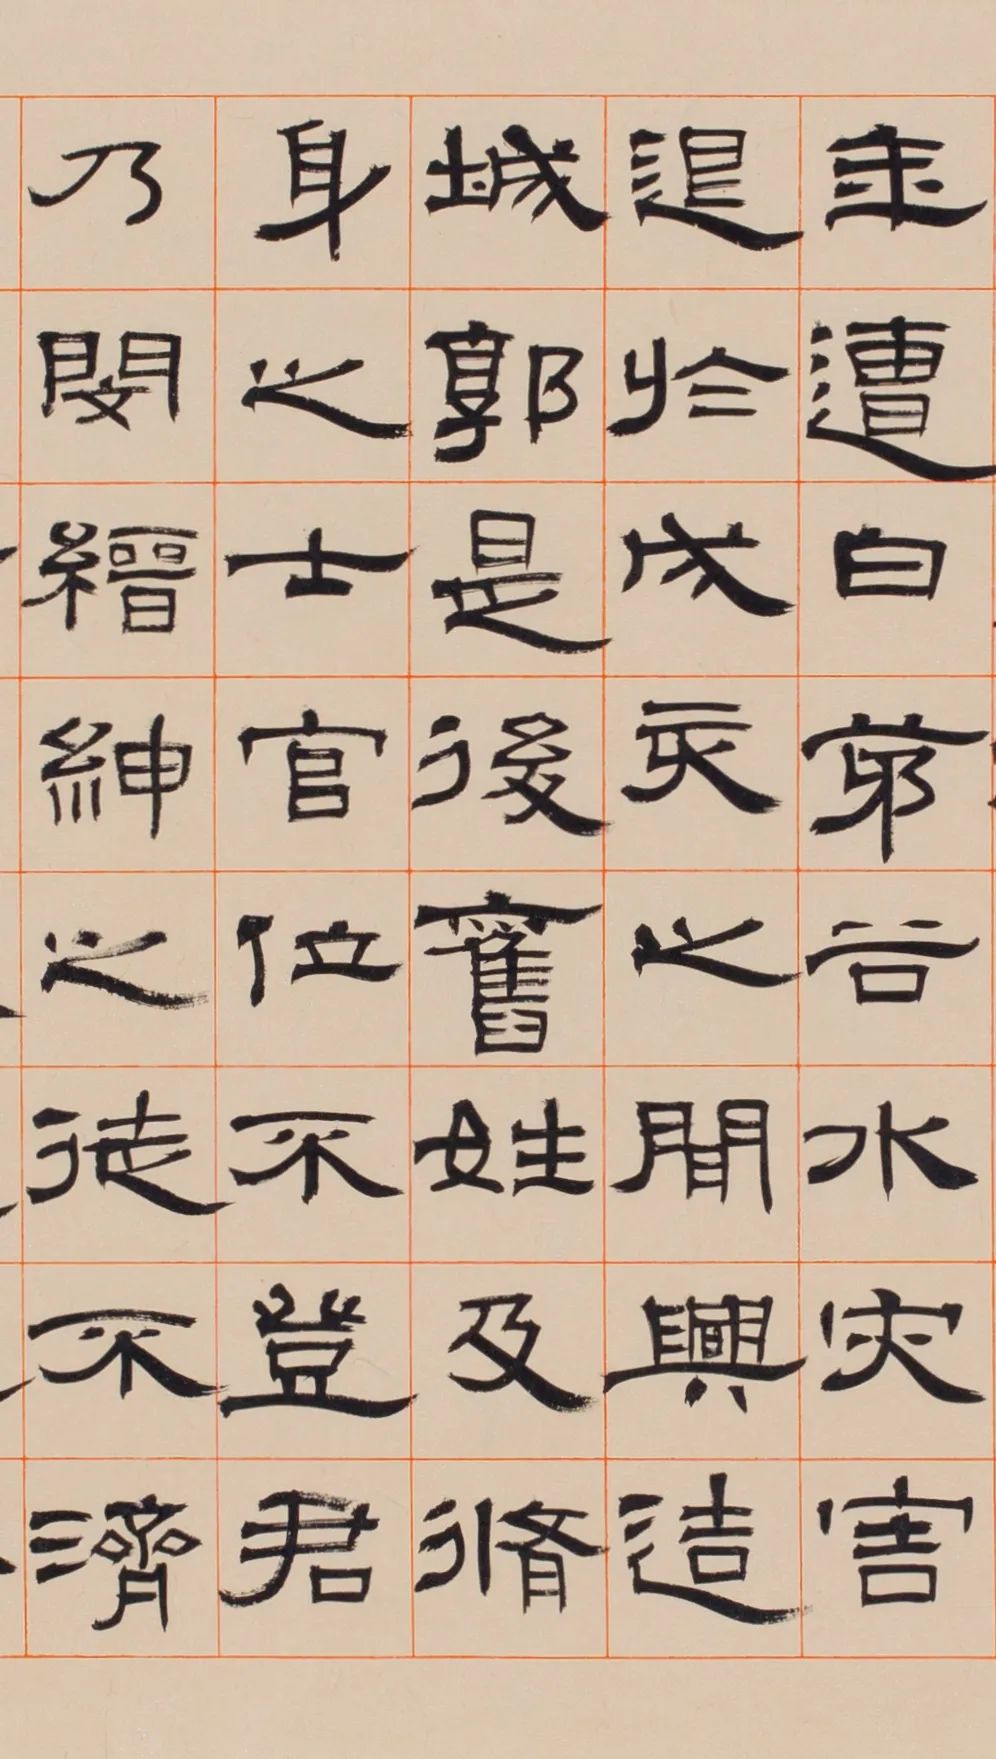 年遭白茅谷水灾害
退於戌亥之間興造
城郭是後舊姓及脩
身之士官位不登君
乃閔縉紳之徒不濟